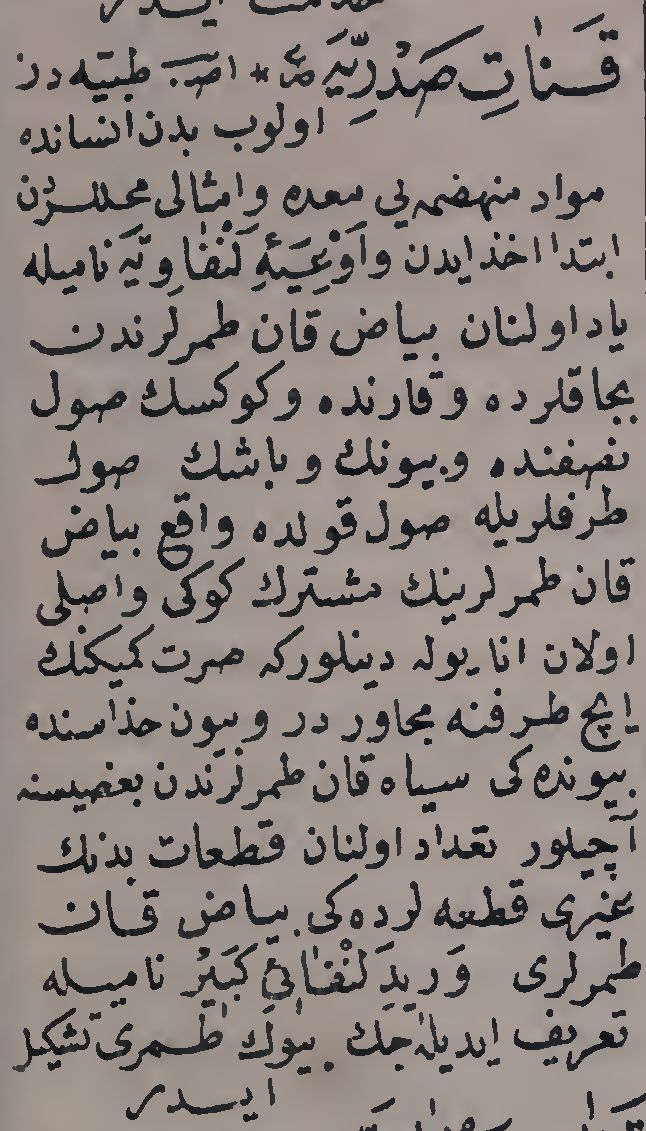 ايدر
قَنَاتِ صَدْرِيَّه * اصب طبيه در
اولوب بدن انسانده
مواد منهضمه يى معده وامثالى محللردن
ابتدا اخذ ايدن و اَوْعِيَۀِ لَنْفَاوِيَّه ناميله
ياد اولنان بياض قان طمرلرندن
بجاقلرده و قارنده و كوكسك صول
نصفنده و بيونك و باشك صول
طرفلريله صول قولده واقع بياض
قان طمرلرينك مشترك كوكى واصلى
اولان انا يوله دينلوركه صرت كميكنك
ايچ طرفنه مجاور در و بيون حذاسنده
بيونده كى سياه قان طمرلرندن بعضيسنه
آچيلور تعداد اولنان قطعات بدنك
غيرى قطعه لرده كى بياض قان
طمرلرى وَرِيدِ لَنْفَائِ كَبِيرْ ناميله
تعريف ايديله جك بيوك طمرى تشكيل
ايدر